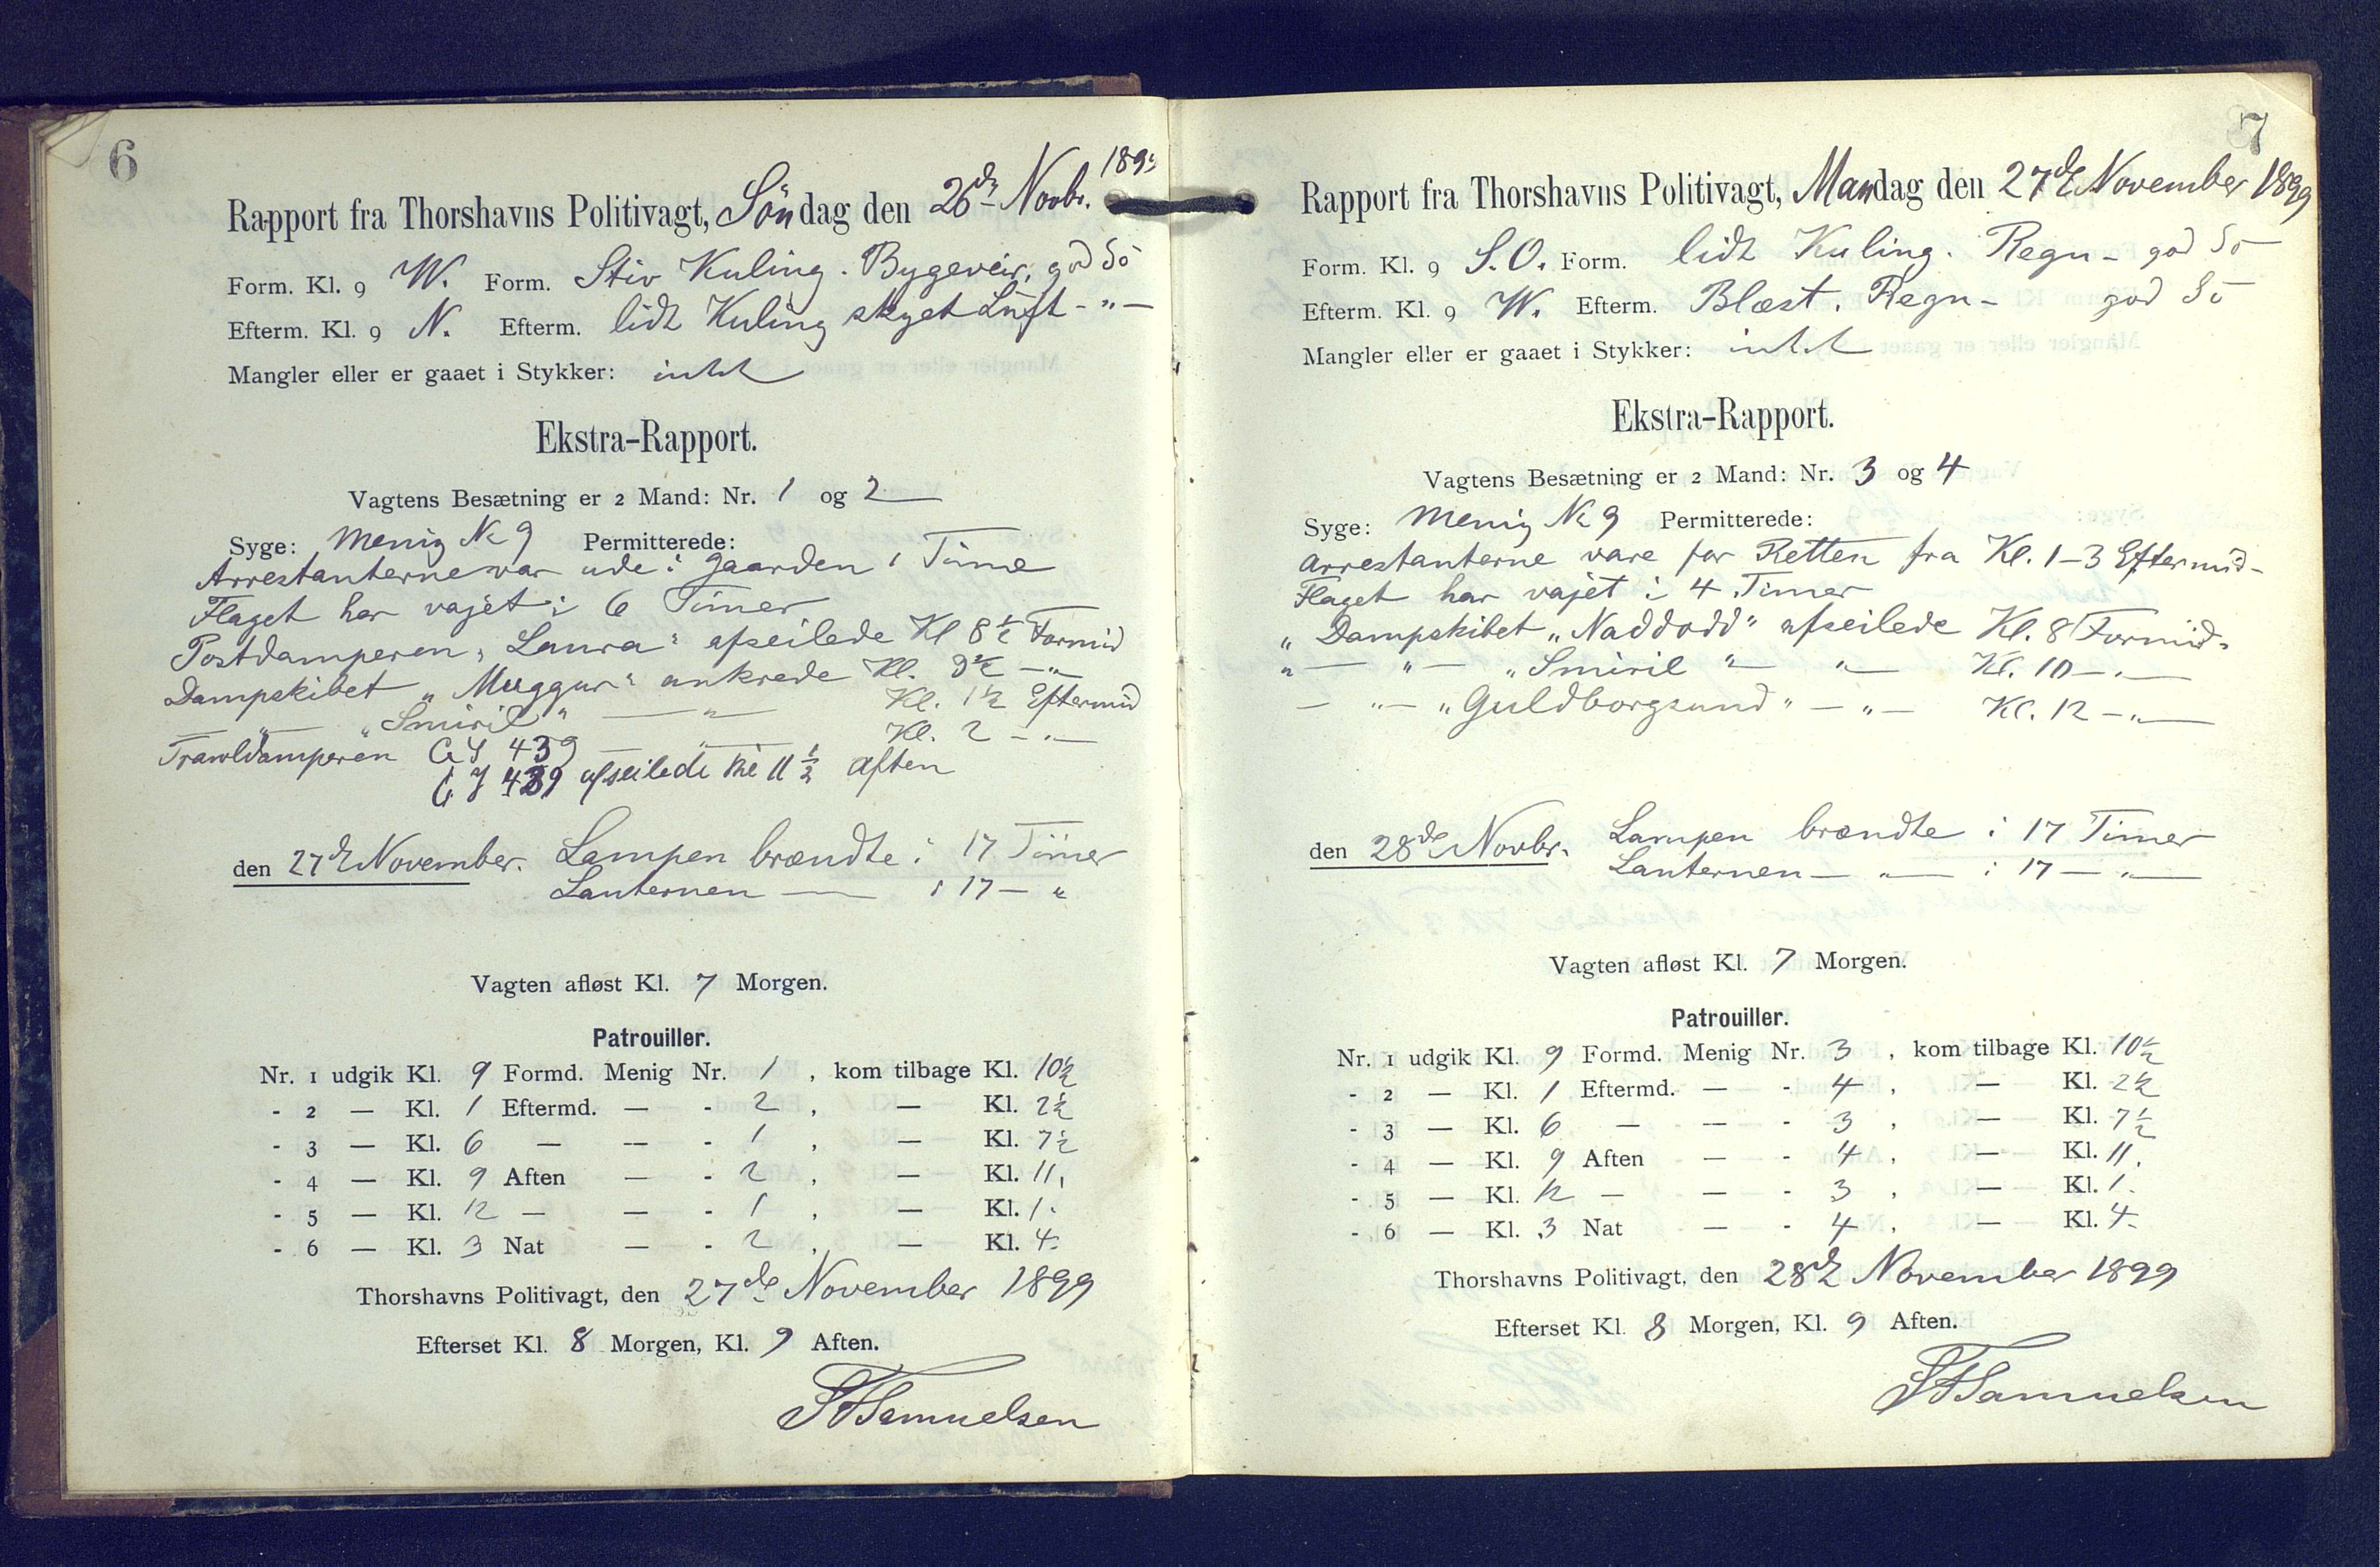 6
Rapport fra Thorshavns Politivagt, Söndag den 26de Novbr. 1899
Form. Kl. 9 W. Form. Stiv Kuling. Bygeveir, god Sö
Efterm. Kl. 9 N. Efterm. lidt Kuling skyet Luft - " -
Mangler eller er gaaet i Stykker: intet
Ekstra-Rapport.
Vagtens Besætning er 2 Mand: Nr. 1 og 2
Syge: Menig No 9 Permitterede:
Arrestanterne var ude i Gaarden 1 Time
Flaget har vajet i 6 Timer
Postdamperen "Laura" afseilede Kl 8½ Formid
Dampskibet "Muggur" ankrede Kl. 9½ - " -
- " - "Smiril" - " - Kl. 1½ Eftermid
Trawldamperen GY 439 - " - Kl. 2 - " -
GY 439 afseilede Kl 11½ aften
den 27de November. Lampen brændte i 17 Timer
Lanternen - i 17 - "
Vagten afløst Kl. 7 Morgen.
Patrouiller.
Nr. 1 udgik Kl. 9 Formd. Menig Nr. 1, kom tilbage Kl. 10½
- 2 — Kl. 1 Eftermd. — - 2, — Kl. 2½
- 3 — Kl. 6 — — - 1, — Kl. 7½
- 4 — Kl. 9 Aften — - 2, — Kl. 11,
- 5 — Kl. 12 — — - 1, — Kl. 1.
- 6 — Kl. 3 Nat — - 2, — Kl. 4.
Thorshavns Politivagt, den 27de November 1899
Efterset Kl. 8 Morgen, Kl. 9 Aften.
Samuelsen
7
Rapport fra Thorshavns Politivagt, Mandag den 27de November 1899
Form. Kl. 9 S.O. Form. lidt Kuling. Regn - god Sö
Efterm. Kl. 9 W. Efterm. Blæst. Regn - god Sö
Mangler eller er gaaet i Stykker: intet
Ekstra-Rapport.
Vagtens Besætning er 2 Mand: Nr. 3 og 4
Syge: Menig No 9 Permitterede:
Arrestanterne vare for Retten fra Kl. 1-3 Eftermid-
Flaget har vajet i 4 Timer
" Dampskibet "Naddodd" afseilede Kl. 8 Formid-
" - " - "Smiril" - " - Kl. 10 - " -
- " - "Guldborgsund" - " - Kl. 12 - " -
den 28de Novbr. Lampen brændte i 17 Timer
Lanternen - " - i 17 - " -
Vagten afløst Kl. 7 Morgen.
Patrouiller.
Nr. 1 udgik Kl. 9 Formd. Menig Nr. 3, kom tilbage Kl. 10½
- 2 — Kl. 1 Eftermd. — - 4, — Kl. 2½
- 3 — Kl. 6 — — - 3, — Kl. 7½
- 4 — Kl. 9 Aften — - 4, — Kl. 11.
- 5 — Kl. 12 — — - 3, — Kl. 1.
- 6 — Kl. 3 Nat — - 4, — Kl. 4.
Thorshavns Politivagt, den 28de November 1899
Efterset Kl. 8 Morgen, Kl. 9 Aften.
Samuelsen